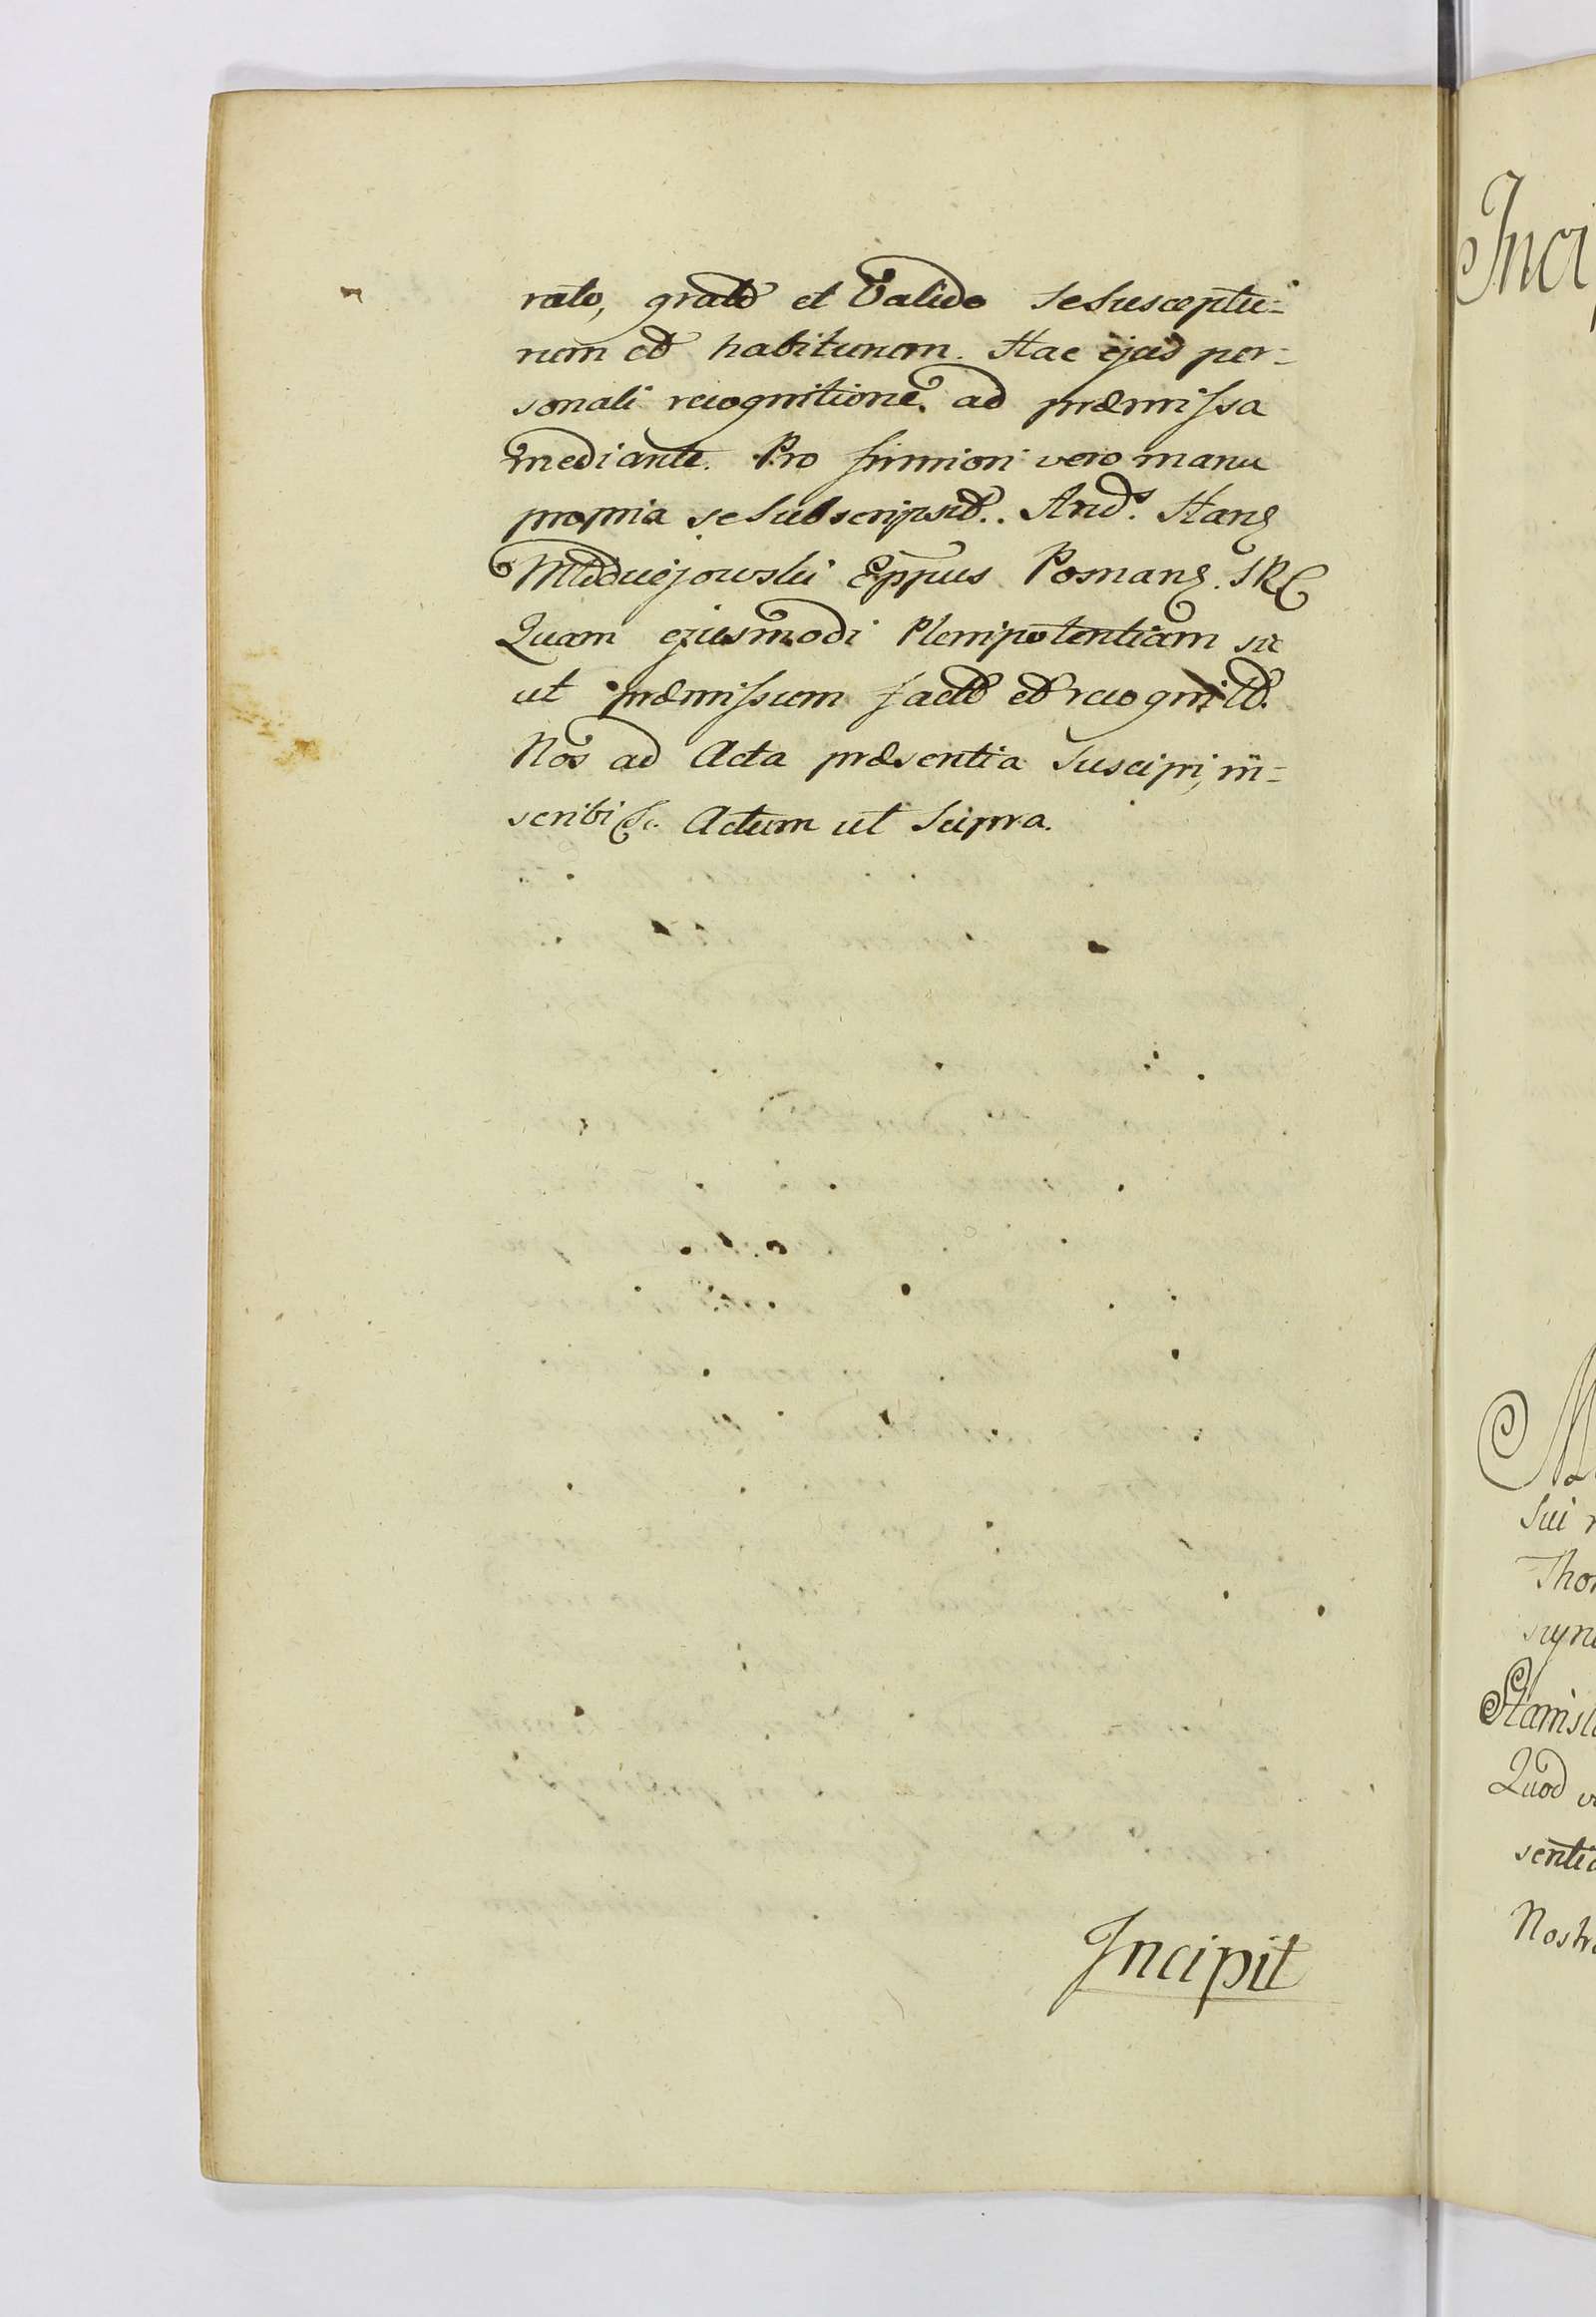 rato, grato et Valido se susceptu=
rum et habiturum. Hac ejus per=
sonali recognitione ad præmissa
mediante. Pro firmiori vero manu
propria se subscripsit. And.s Stan
Młodziejowski Eppus Posnan. SRC
Quam ejusmodi Plenipotentiam sic
ut præmissum facto et recognito.
Nos ad Acta præsentia suscipi, in=
scribi &c. Actum ut supra.
Incipit
Inci
Sui
Tho
Stanisl
Quod
senti
Nostr